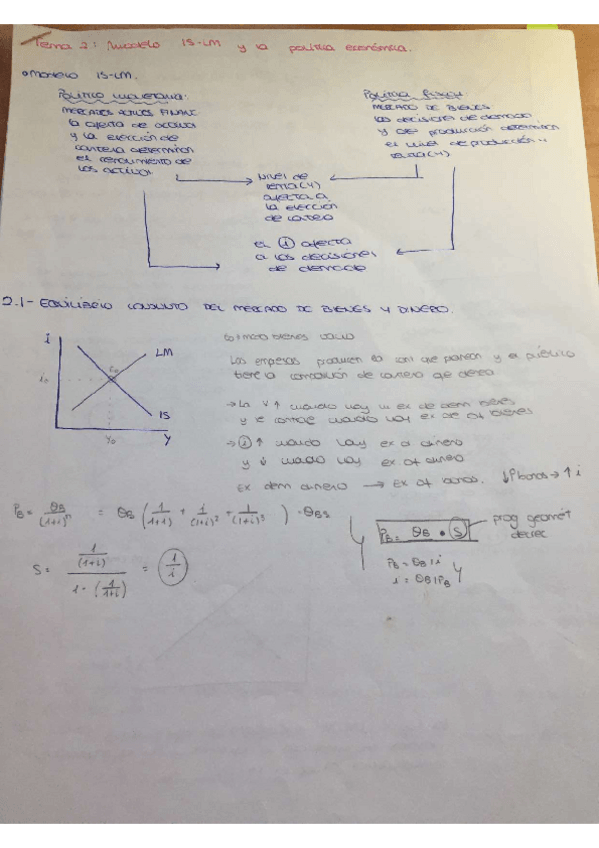 Tema 2: Modelo IS-LM y la política económica.
Modelo IS-LM.
Política monetaria:
MERCADOS ACTIVOS FINANC
la oferta de activos
y la elección de
cartera determinan
el rendimiento de
los activos.
Política fiscal:
MERCADO DE BIENES
las decisiones de demanda
y de producción determinan
el nivel de producción y
renta (Y)
Nivel de
renta (Y)
afecta a
la elección
de cartera
el i afecta
a las decisiones
de demanda
2.1- EQUILIBRIO CONJUNTO DEL MERCADO DE BIENES Y DINERO.
i
LM
e₀
i₀
IS
Y₀
Y
bienes
Las empresas producen la que planean y el público
tiene la composición de cartera que desea
→ La Y ↑ cuando hay un ex de dem bienes
y cuando hay ex de of bienes
→ i ↑ cuando hay ex d dinero
y ↓ cuando hay ex of dinero
Ex dem dinero → Ex of bonos. ↓Pbonos → ↑ i
P_B = θ_B/(1+i)ⁿ = θ_B (1/(1+i) + 1/(1+i)² + 1/(1+i)³) · θ_B s
P_B = θ_B · S
prog geomét
decrec
P_B = θ_B / i
i = θ_B / P_B
S = (1/(1+i)) / (1 - (1/(1+i))) = 1/i